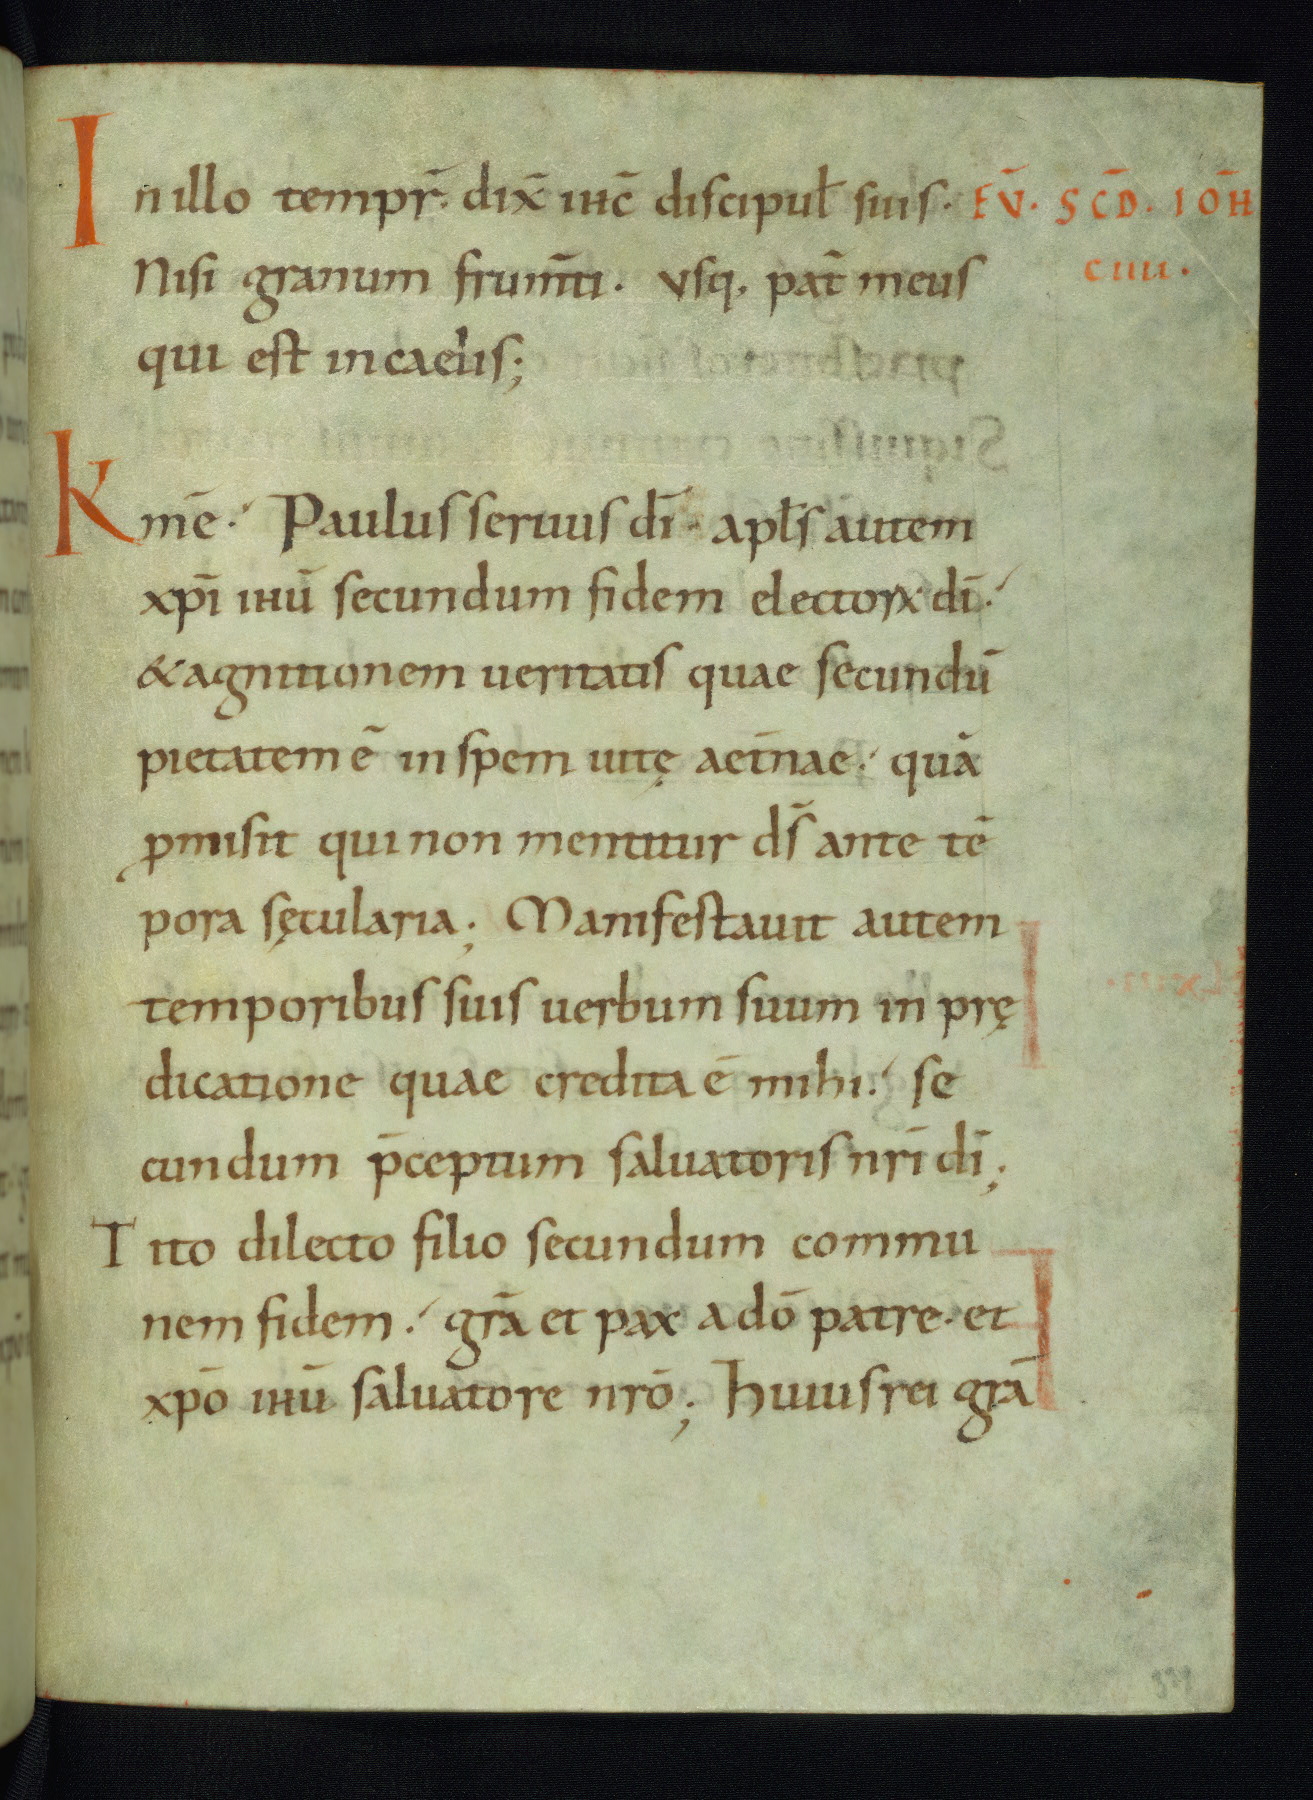 In illo tempr̄. dix̄ ihc̄ discipul̄ suis. EV̄. SC̄D. IOH̄
Nisi granum frum̄ti. vsq. pat̄ meus CIIII.
qui est in caelis;
K mē. Paulus seruus dī. apl̄s autem
xpī ihū secundum fidem electorꝝ dī.
& agnitionem ueritatis quae secundū
pietatem ē in spem uitę aet̄nae. quā
ꝓmisit qui non mentitur ds̄ ante tē
pora sęcularia; Manifestauit autem
temporibus suis uerbum suum in prę
dicatione quae credita ē mihi. se
cundum p̄ceptum saluatoris nr̄i dī;
Tito dilecto filio secundum commu
nem fidem. gr̄a et pax a dō patre. et
xpō ihū saluatore nrō; huius rei gr̄a